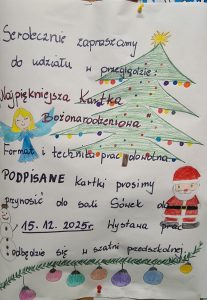 Serdecznie zapraszamy
do udziału w przeglądzie:
"Najpiękniejsza Kartka
Bożonarodzeniowa
Format i technika prac dowolna.
PODPISANE kartki prosimy
przynosić do sali Sówek do
15.12.2025r. Wystawa prac
odbędzie się w szatni przedszkolnej.